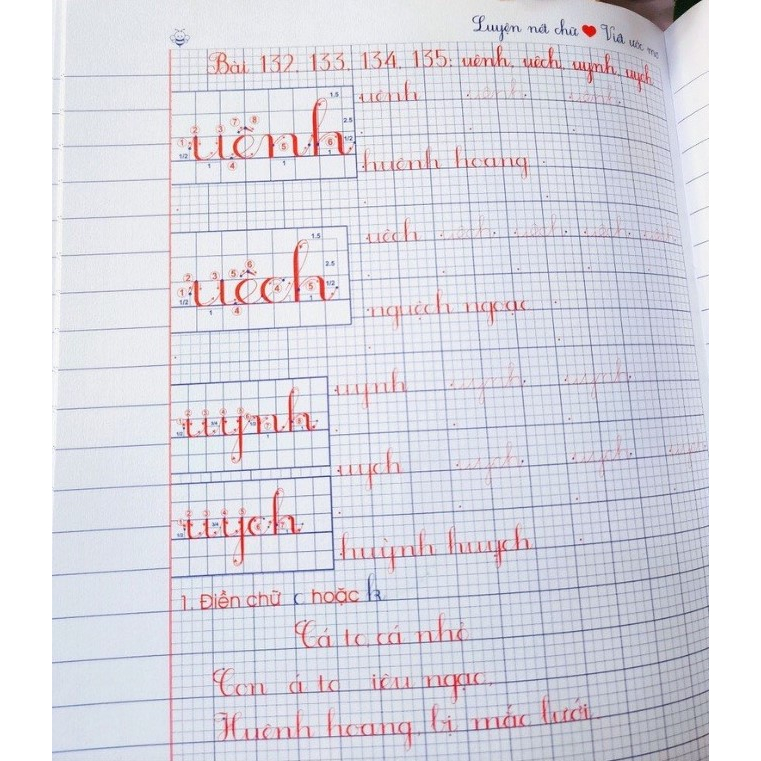 Luyện nét chữ ❤ Viết ước mơ
Bài 132, 133, 134, 135: uênh, uêch, uynh, uych
uênh uênh uênh uênh
huênh hoang
uêch uêch uêch uêch uêch uêch
nguệch ngoạc
uynh uynh uynh uynh
uych uych uych uych uych
huỳnh huỵch
1. Điền chữ c hoặc k
Cá to, cá nhỏ
Con á to iêu ngạo,
Huênh hoang, bị mắc lưới.